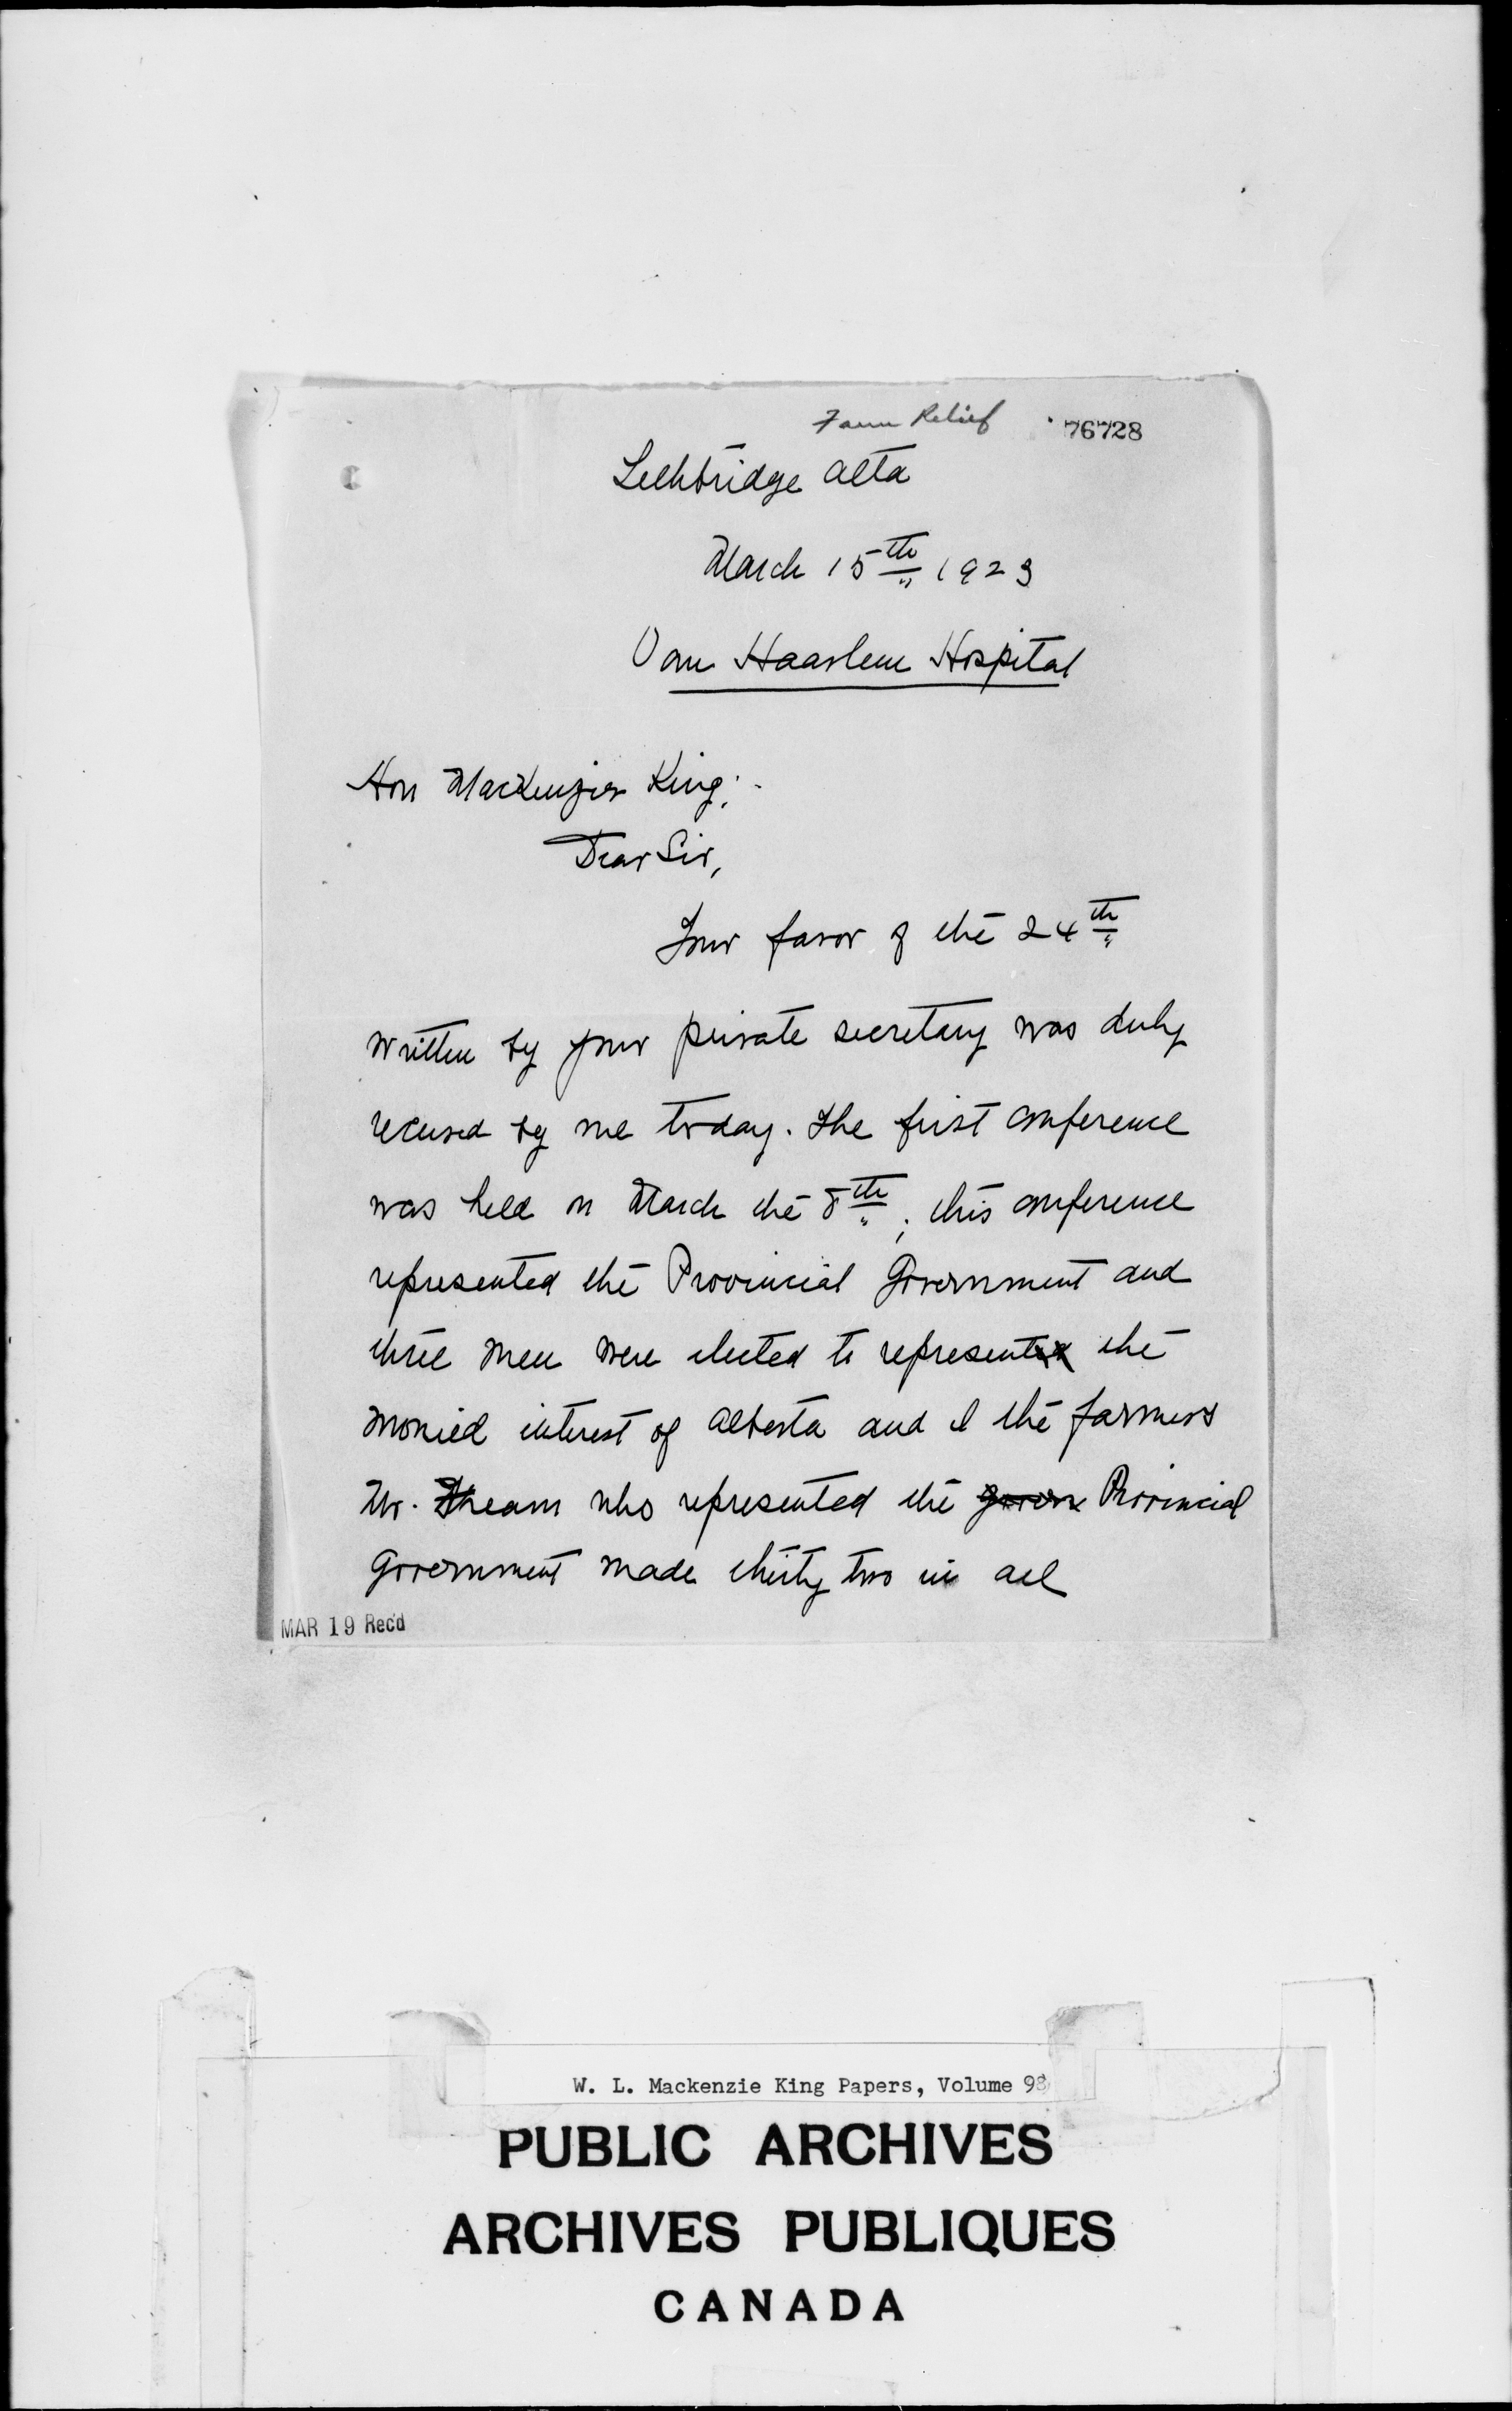 Farm Relief 76728
Lethbridge Alta
March 15th 1923
Van Haarlem Hospital
Hon MacKenzie King:-
Dear Sir,
Your favor of the 24th
written by your private secretary was duly
received by me today. The first conference
was held on March the 8th; this conference
represented the Provincial Government and
three men were elected to represent the
monied interest of Alberta and I the farmers
Mr. who represented the Provincial
Government made thirty two in all
MAR 19 Rec'd
W. L. Mackenzie King Papers, Volume 98
PUBLIC ARCHIVES
ARCHIVES PUBLIQUES
CANADA